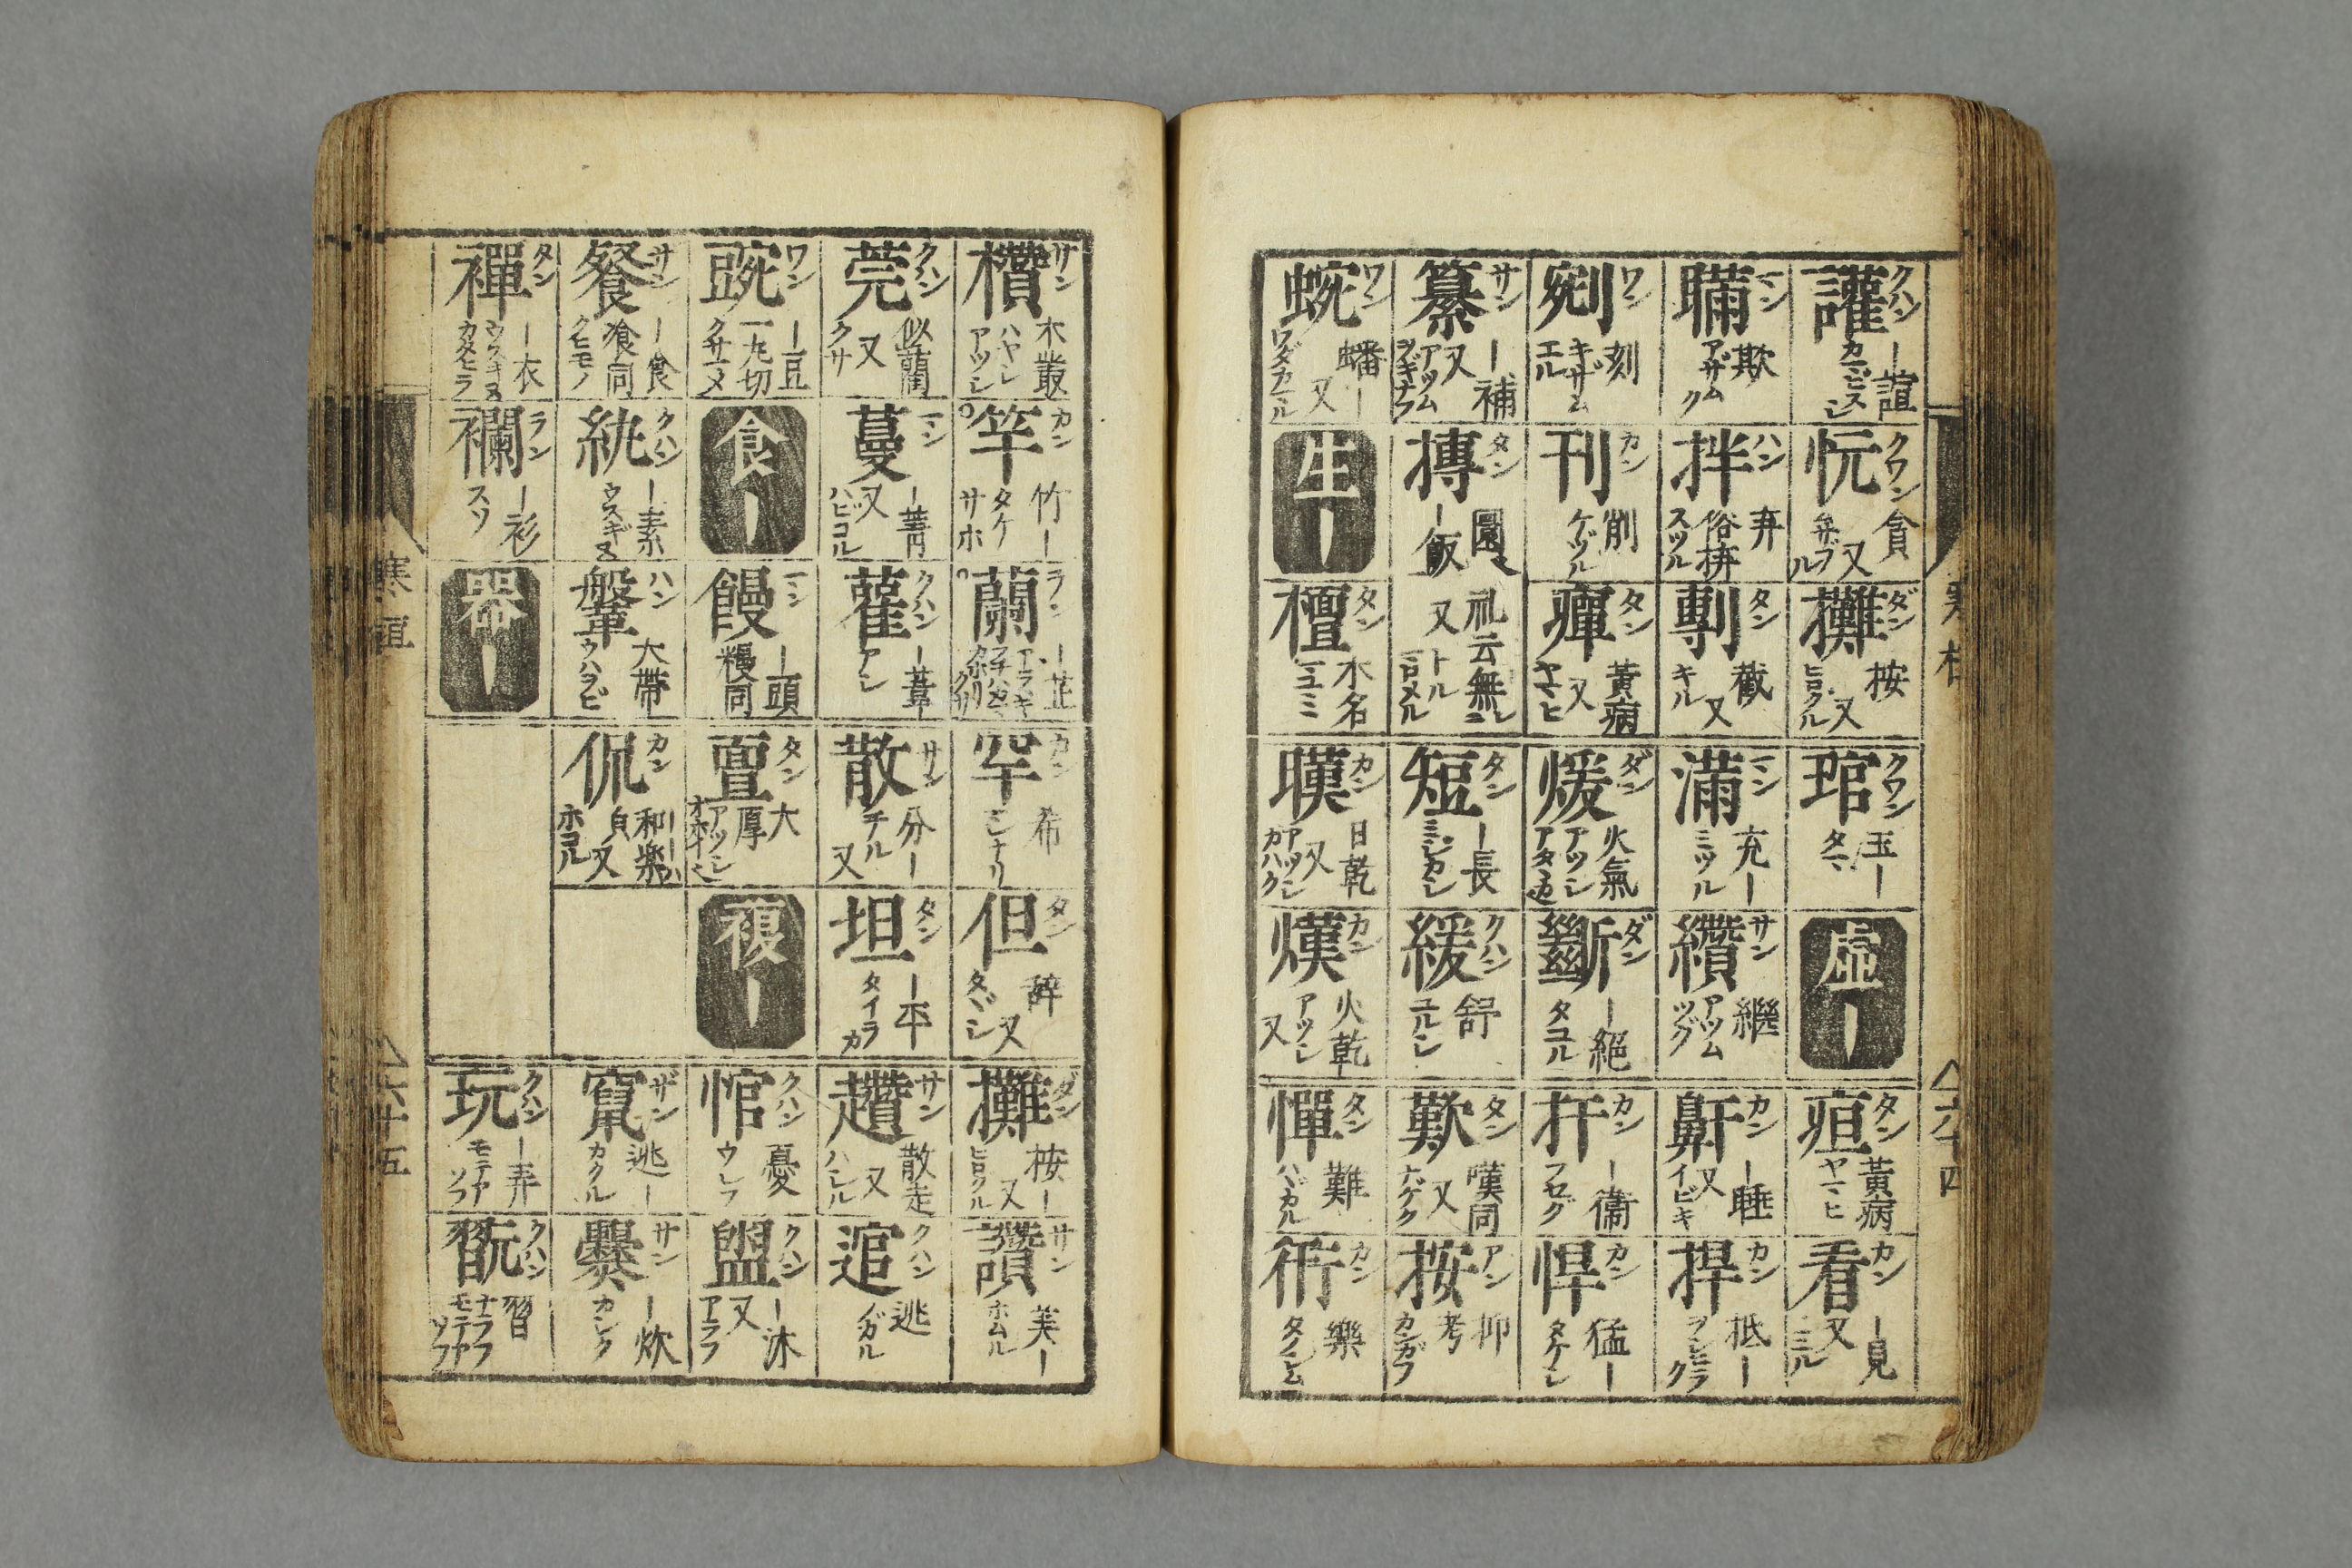 讙 クハン ー諠 カマビスシ
忨 クワン 貪 又
攤 ダン 按 又 ヒロクル
琯 クワン 玉ー タマ
虚ー
疸 タン 黄病 ヤマヒ
看 カン ー見 又 ミル
瞞 マン 欺 アザムク
拌 ハン 弃 俗拚 スツル
剸 タン 截 又 キル
滿 マン 充ー ミツル
纘 サン 繼 アツム ツグ
鼾 カン ー睡 又 イビキ
捍 カン 抵ー
剜 ワン 刻 キザム エル
刊 カン 削 ケヅル
癉 タン 黄病 又 ヤマヒ
煖 ダン 火氣 アツシ
斷 ダン ー絶 タユル
扞 カン ー衞 フセグ
悍 カン 猛ー タケシ
纂 サン ー補 又 アツム ヲギナフ
摶 タン 圜 ー飯 礼云無 又 トル
短 タン ー長 ミジカシ
緩 クハン 舒 ユルシ
歎 タン 嘆同 又 ナゲク
按 アン 抑 考 カンガフ
蜿 ワン 蟠ー 又
生ー
檀 タン 木名 マユミ
暵 カン 日乾 又 アツシ カハク
熯 カン 火乾 アツシ 又
憚 タン 難 ハバカル
衎 カン 樂 タノシム
六十四
欑 サン 木叢 ハヤシ アツシ
竿 カン 竹ー タケ サホ
蘭 ラン ー芷
罕 カン 希
但 タン 辞 又 タヾシ
攤 ダン 按ー 又 ヒロクル
讚 サン 美ー ホムル
莞 クハン 似藺 又 クサ
蔓 マン ー菁 又 ハビコル
雚 クハン ー葦 アシ
散 サン 分ー チル 又
坦 タン ー平 タイラカ
趲 サン 散走 又 ハシル
逭 クハン 逃 ノガル
豌 ワン ー豆 一丸切 クサマメ
食ー
饅 マン ー頭 䊡同
亶 タン 大 厚 アツシ
複ー
悺 クハン 憂 ウレフ
盥 クハン ー沐 又 アラフ
餐 サン ー食 飡同 クヒモノ
紈 クハン ー素 ウスギヌ
鞶 ハン 大帶ー ウハヲビ
侃 カン 和樂 皃 又
竄 ザン 逃ー カクル
爨 サン ー炊 カシク
襌 タン ー衣 ウスギヌ カタビラ
襴 ラン ー衫 スソ
器ー
玩 クハン ー弄 モテアソフ
翫 クハン 習 ナラフ モテアソフ
寒 桓
六十五